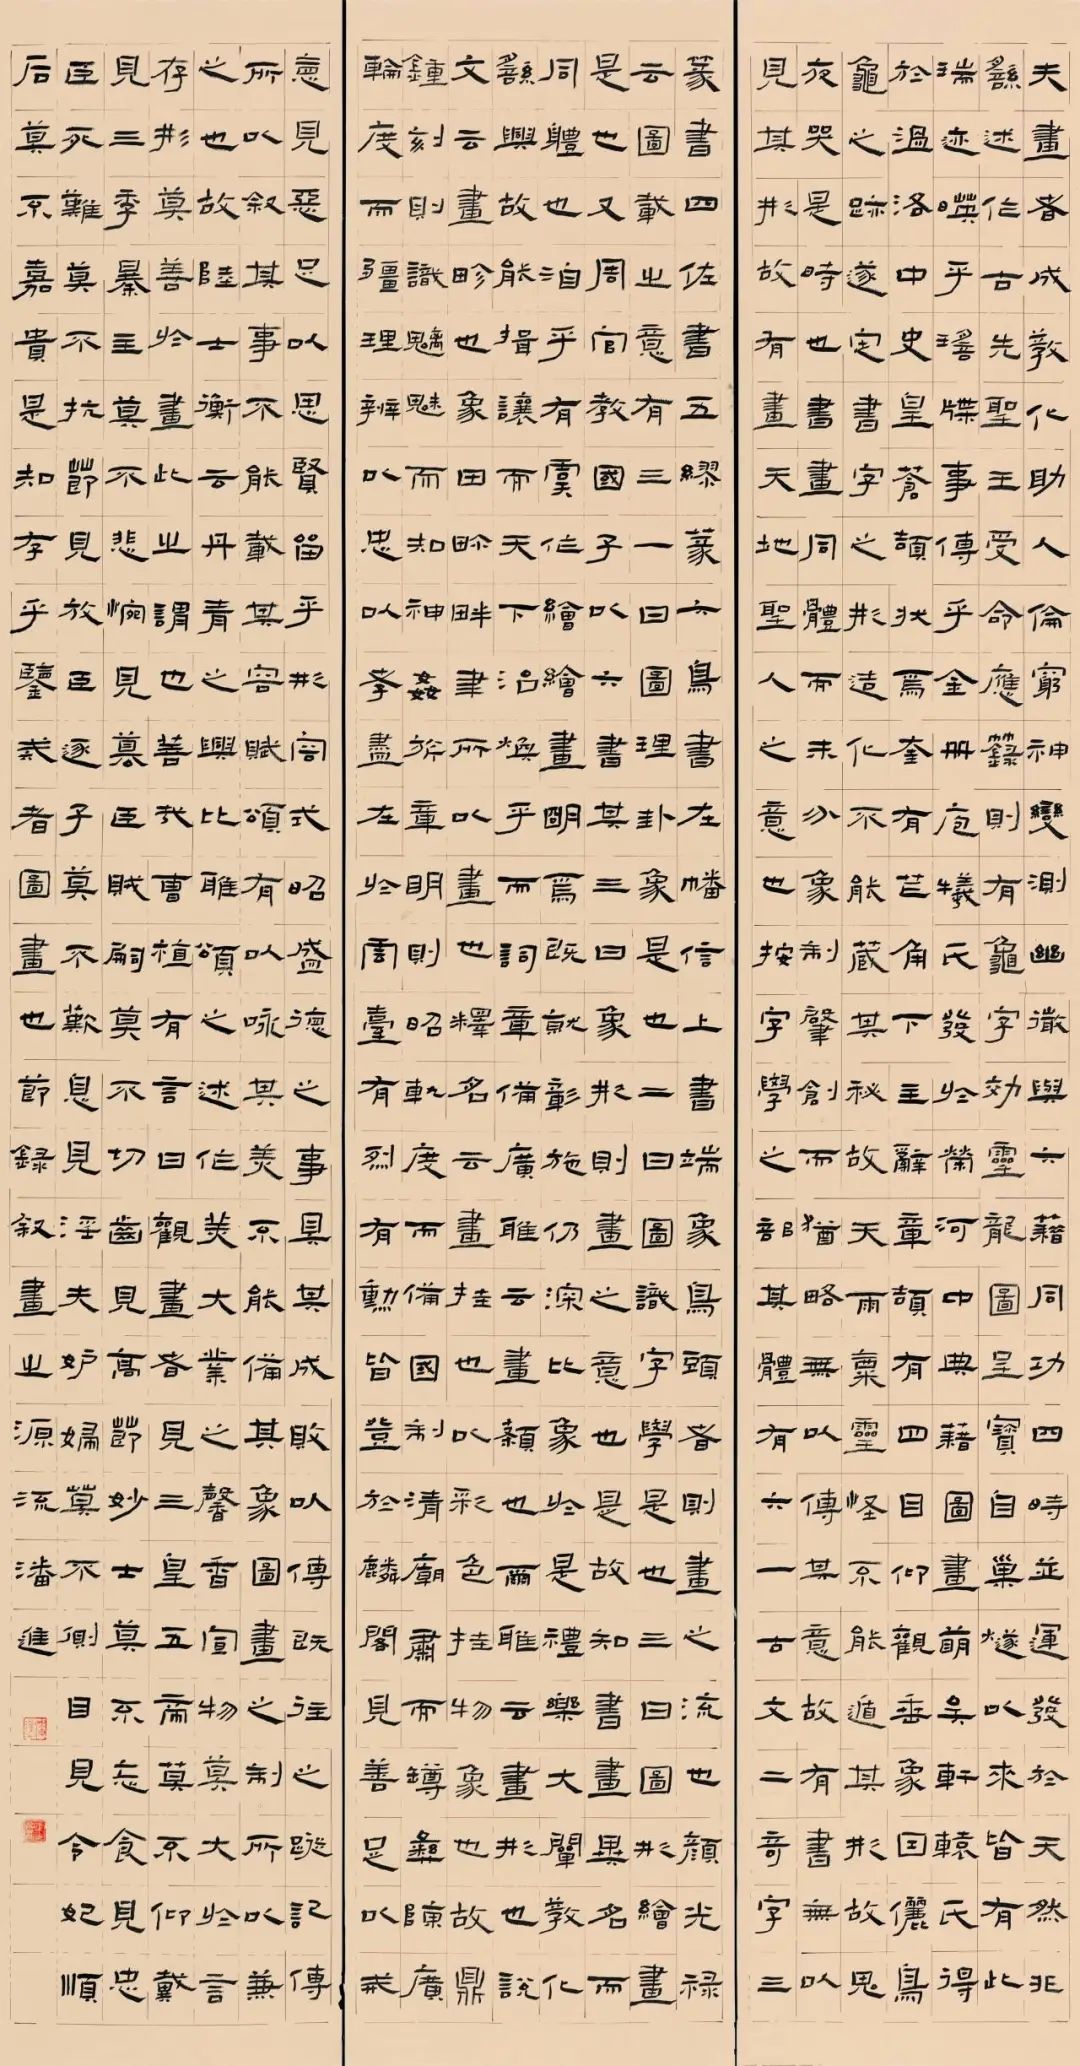 夫畫者成教化助人倫窮神變測幽微與六籍同功四時並運發於天然非
繇述作古先聖王受命應籙則有龜字効靈龍圖呈寶自巢燧以來皆有此
瑞迹暎乎瑤牒事傳乎金冊庖犧氏發於榮河中典籍圖畫萌矣軒轅氏得
於溫洛中史皇蒼頡狀焉奎有芒角下主辭章頡有四目仰觀垂象因儷鳥
龜之跡遂定書字之形造化不能藏其秘故天雨粟靈怪不能遁其形故鬼
夜哭是時也書畫同體而未分象制肇創而猶略無以傳其意故有書無以
見其形故有畫天地聖人之意也按字學之部其體有六一古文二奇字三
篆書四佐書五繆篆六鳥書在幡信上書端象鳥頭者則畫之流也顏光祿
云圖載之意有三一曰圖理卦象是也二曰圖識字學是也三曰圖形繪畫
是也又周官教國子以六書其三曰象形則畫之意也是故知書畫異名而
同體也洎乎有虞作繪繪畫明焉既就彰施仍深比象於是禮樂大闡教化
繇興故能揖讓而天下治煥乎而詞章備廣雅云畫類也爾雅云畫形也說
文云畫畛也象田畛畔聿所以畫也釋名云畫挂也以彩色挂物象也故鼎
鍾刻則識魑魅而知神姦旂章明則昭軌度而備國制清廟肅而罇彝陳廣
輪度而疆理辨以忠以孝盡在於雲臺有烈有勳皆登於麟閣見善足以戒
惡見惡足以思賢留乎形容式昭盛德之事具其成敗以傳既往之蹤記傳
所以叙其事不能載其容賦頌有以咏其美不能備其象圖畫之制所以兼
之也故陸士衡云丹青之興比雅頌之述作美大業之馨香宣物莫大於言
存形莫善於畫此之謂也善哉曹植有言曰觀畫者見三皇五帝莫不仰戴
見三季暴主莫不悲惋見篡臣賊嗣莫不切齒見高節妙士莫不忘食見忠
臣死難莫不抗節見放臣逐子莫不歎息見淫夫妒婦莫不側目見令妃順
后莫不嘉貴是知存乎鑒戒者圖畫也節録叙畫之源流潘進